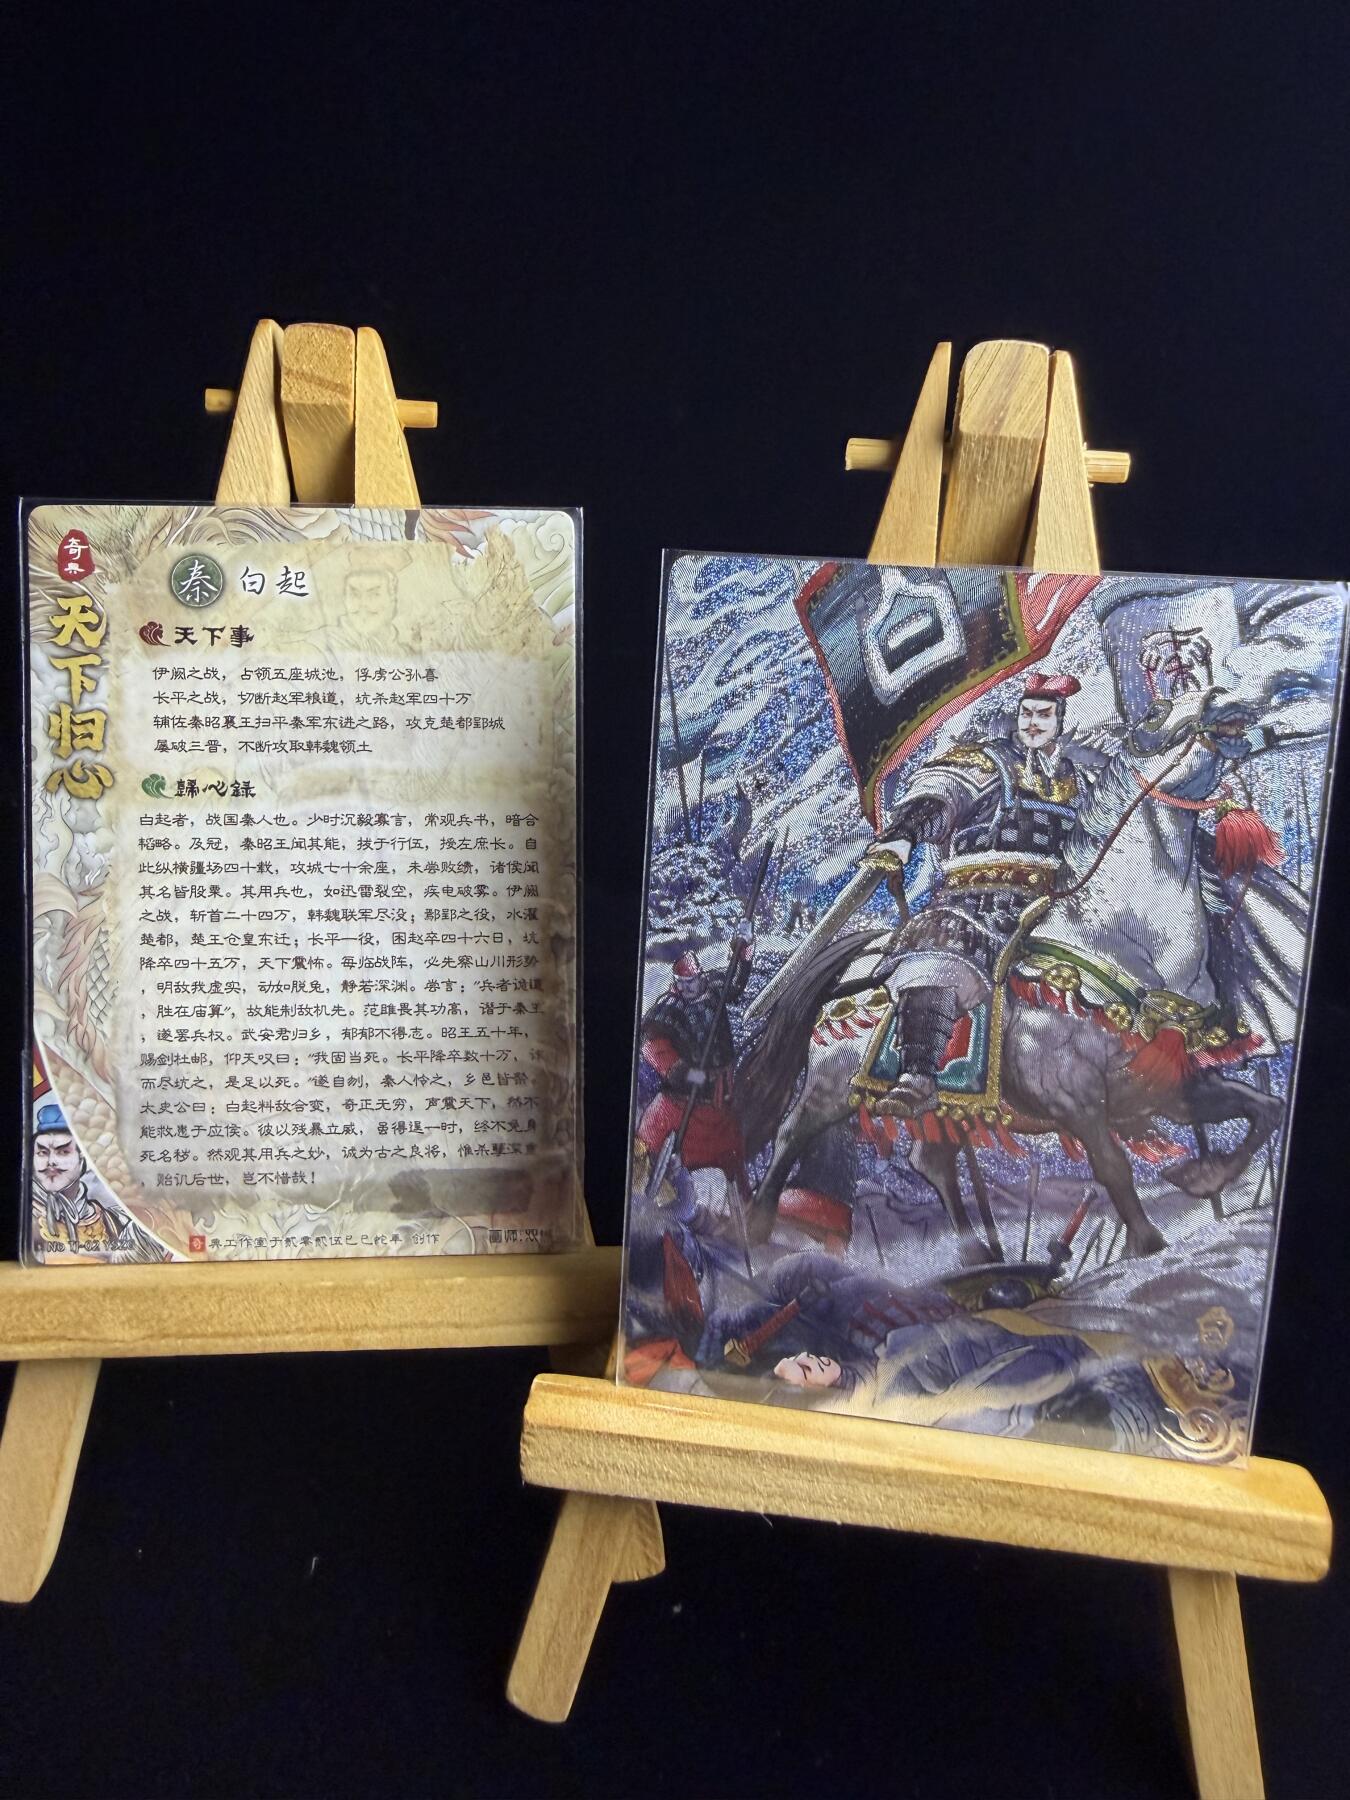 奇典
天下归心
秦 白起
天下事
伊阙之战，占领五座城池，俘虏公孙喜
长平之战，切断赵军粮道，坑杀赵军四十万
辅佐秦昭襄王扫平秦军东进之路，攻克楚都郢城
屡破三晋，不断攻取韩魏领土
归心录
白起者，战国秦人也。少时沉毅寡言，常观兵书，暗合
韬略。及冠，秦昭王闻其能，拔于行伍，授左庶长。自
此纵横疆场四十载，攻城七十余座，未尝败绩，诸侯闻
其名皆股栗。其用兵也，如迅雷裂空，疾电破雾。伊阙
之战，斩首二十四万，韩魏联军尽没；鄢郢之役，水灌
楚都，楚王仓皇东迁；长平一役，困赵卒四十六日，坑
降卒四十五万，天下震怖。每临战阵，必先察山川形势
，明敌我虚实，动如脱兔，静若深渊。尝言："兵者诡道
，胜在庙算"，故能制敌机先。范雎畏其功高，谮于秦王
，遂罢兵权。武安君归乡，郁郁不得志。昭王五十年，
赐剑杜邮，仰天叹曰："我固当死。长平降卒数十万，诈
而尽坑之，是足以死。"遂自刎，秦人怜之，乡邑皆祭。
太史公曰：白起料敌合变，奇正无穷，声震天下，然不
能救患于应侯。彼以残暴立威，虽得逞一时，终不免身
死名秽。然观其用兵之妙，诚为古之良将，惟杀孽深重
，贻讥后世，岂不惜哉！
奇 典工作室于贰零贰伍乙巳蛇年 创作
画师:
秦